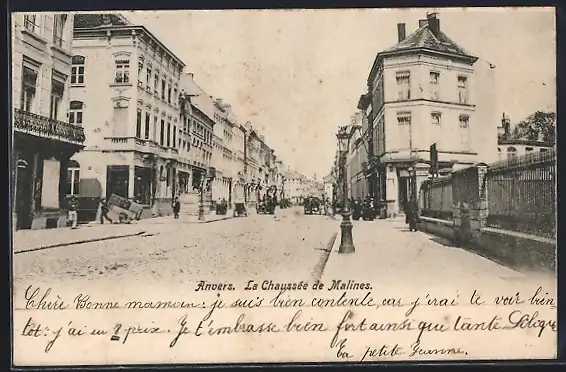 Anvers. La Chaussée de Malines.
Chère Bonne maman: je suis bien contente, car j'irai te voir bien
tôt: j'ai eu 2 prix. Je t'embrasse bien fort ainsi que tante
ta petite Jeanne.